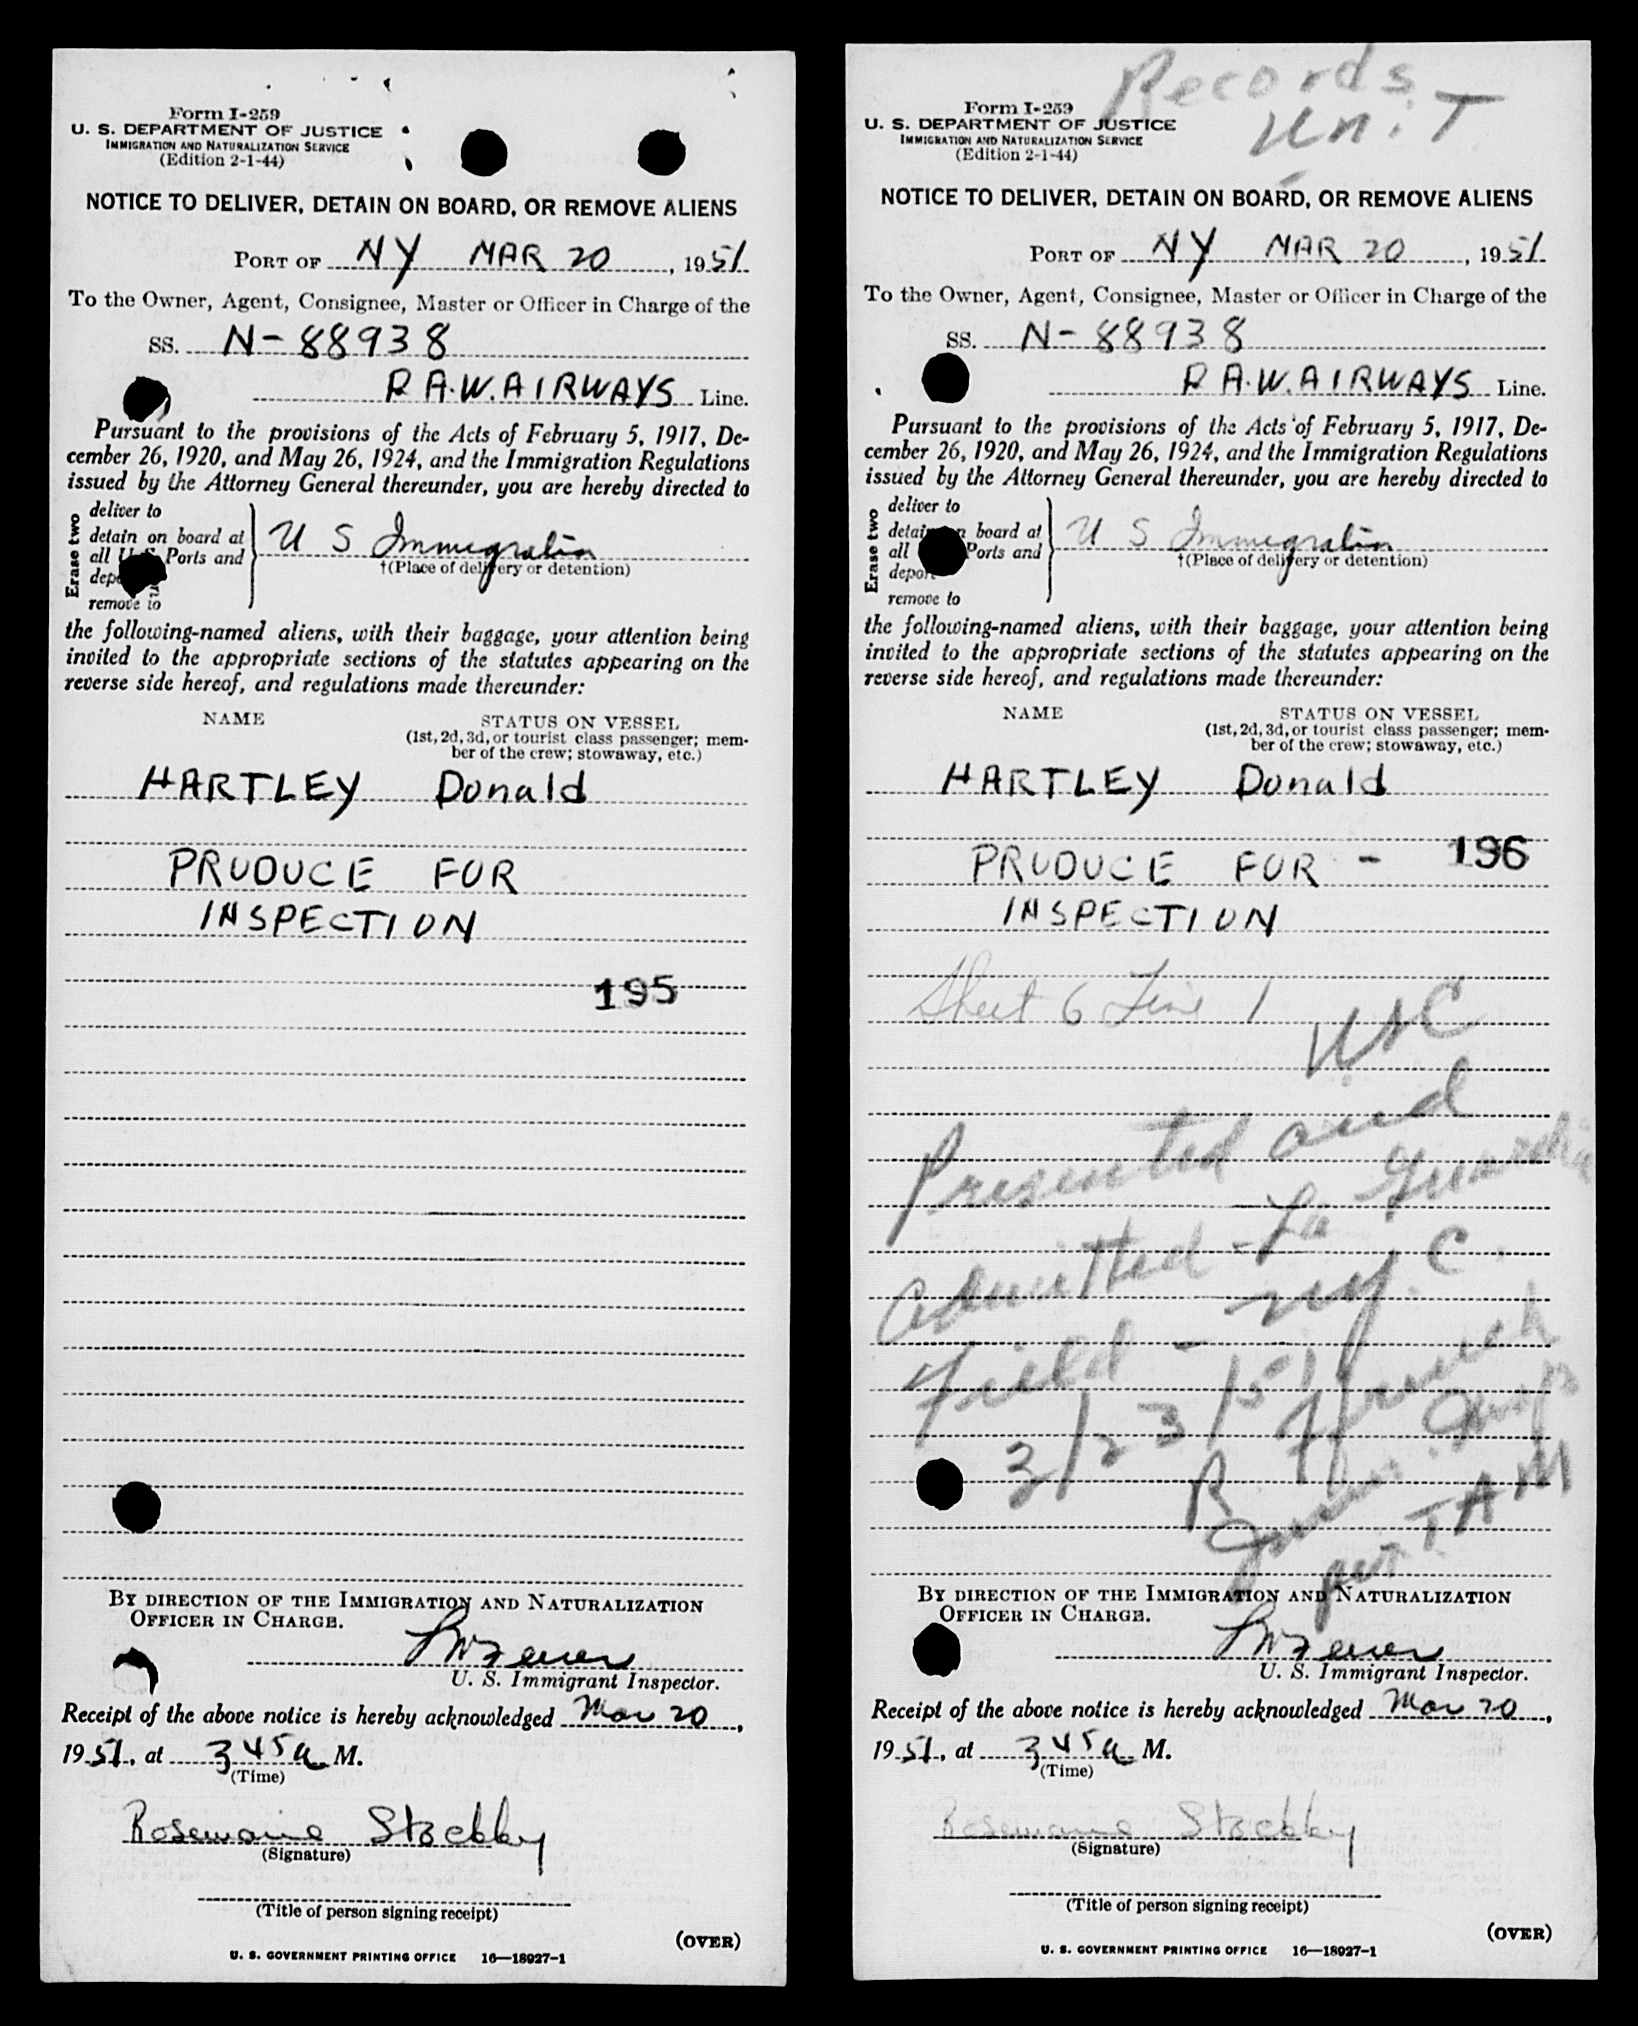 Form I-259
U. S. DEPARTMENT OF JUSTICE
IMMIGRATION AND NATURALIZATION SERVICE
(Edition 2-1-44)
NOTICE TO DELIVER, DETAIN ON BOARD, OR REMOVE ALIENS
PORT OF NY MAR 20, 1951
To the Owner, Agent, Consignee, Master or Officer in Charge of the
SS. N-88938
R A.W. AIRWAYS Line.
Pursuant to the provisions of the Acts of February 5, 1917, De-
cember 26, 1920, and May 26, 1924, and the Immigration Regulations
issued by the Attorney General thereunder, you are hereby directed to
Erase two
deliver to
detain on board at
all U. S. Ports and
remove to
U S Immigration
†(Place of delivery or detention)
the following-named aliens, with their baggage, your attention being
invited to the appropriate sections of the statutes appearing on the
reverse side hereof, and regulations made thereunder:
NAME
STATUS ON VESSEL
(1st, 2d, 3d, or tourist class passenger; mem-
ber of the crew; stowaway, etc.)
HARTLEY Donald
PRODUCE FOR
INSPECTION
195
BY DIRECTION OF THE IMMIGRATION AND NATURALIZATION
OFFICER IN CHARGE.
U. S. Immigrant Inspector.
Receipt of the above notice is hereby acknowledged Mar 20,
1951, at 3 45 a M.
(Time)
Rosemarie Stockley
(Signature)
(Title of person signing receipt)
(OVER)
U. S. GOVERNMENT PRINTING OFFICE 16—18927-1
Records
Unit
Form I-259
U. S. DEPARTMENT OF JUSTICE
IMMIGRATION AND NATURALIZATION SERVICE
(Edition 2-1-44)
NOTICE TO DELIVER, DETAIN ON BOARD, OR REMOVE ALIENS
PORT OF NY MAR 20, 1951
To the Owner, Agent, Consignee, Master or Officer in Charge of the
SS. N-88938
R A.W. AIRWAYS Line.
Pursuant to the provisions of the Acts of February 5, 1917, De-
cember 26, 1920, and May 26, 1924, and the Immigration Regulations
issued by the Attorney General thereunder, you are hereby directed to
Erase two
deliver to
detain on board at
all Ports and
remove to
U S Immigration
†(Place of delivery or detention)
the following-named aliens, with their baggage, your attention being
invited to the appropriate sections of the statutes appearing on the
reverse side hereof, and regulations made thereunder:
NAME
STATUS ON VESSEL
(1st, 2d, 3d, or tourist class passenger; mem-
ber of the crew; stowaway, etc.)
HARTLEY Donald
PRODUCE FOR - 196
INSPECTION
Sheet 6 Line 1
Presented and
admitted - La Guardia
Field - N.Y.C.
3/23/51
per T A M
BY DIRECTION OF THE IMMIGRATION AND NATURALIZATION
OFFICER IN CHARGE.
U. S. Immigrant Inspector.
Receipt of the above notice is hereby acknowledged Mar 20,
1951, at 3 45 a M.
(Time)
Rosemarie Stockley
(Signature)
(Title of person signing receipt)
(OVER)
U. S. GOVERNMENT PRINTING OFFICE 16—18927-1